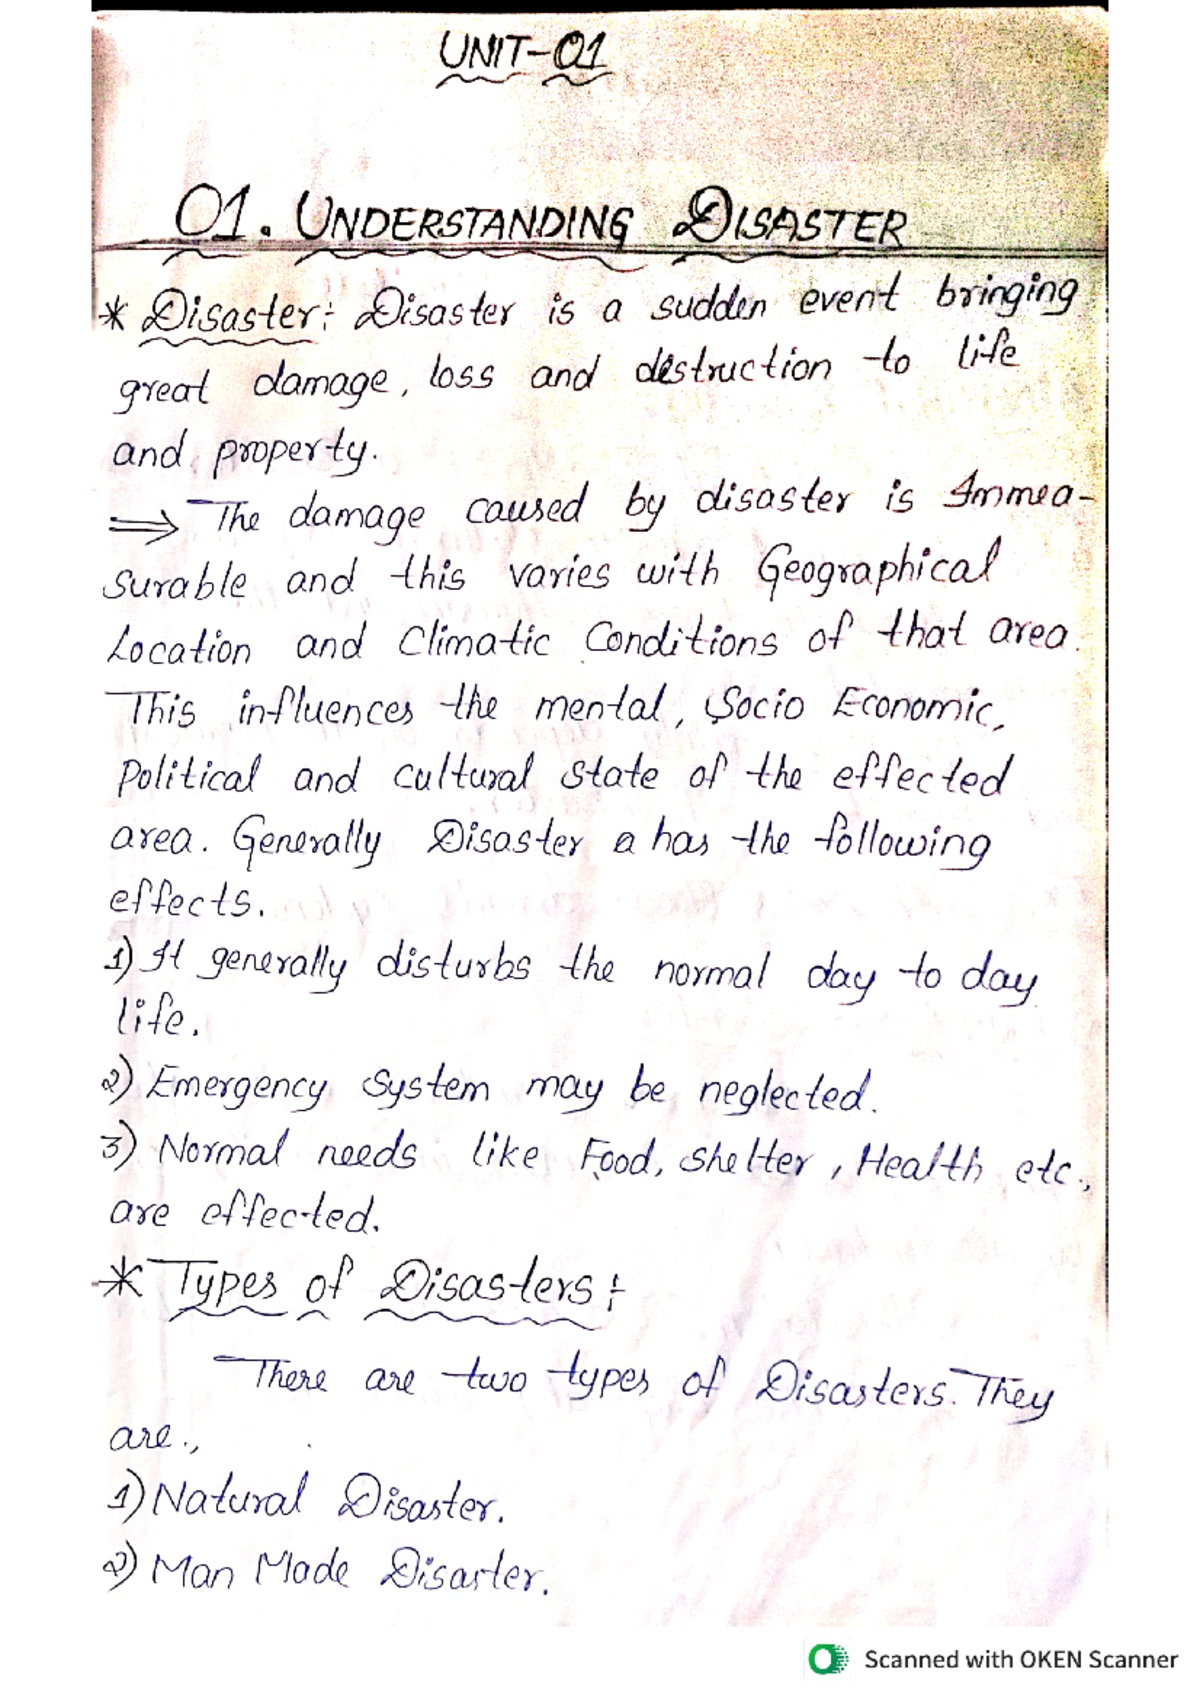 UNIT-01
01. UNDERSTANDING DISASTER
* Disaster:- Disaster is a sudden event bringing
great damage, loss and destruction to life
and property.
⇒ The damage caused by disaster is Immea-
surable and this varies with Geographical
Location and Climatic Conditions of that area.
This influences the mental, Socio Economic,
Political and cultural state of the effected
area. Generally Disaster a has the following
effects.
1) It generally disturbs the normal day to day
life.
2) Emergency System may be neglected.
3) Normal needs like Food, shelter, Health etc.,
are effected.
* Types of Disasters:-
There are two types of Disasters. They
are.,
1) Natural Disaster.
2) Man Made Disaster.
Scanned with OKEN Scanner